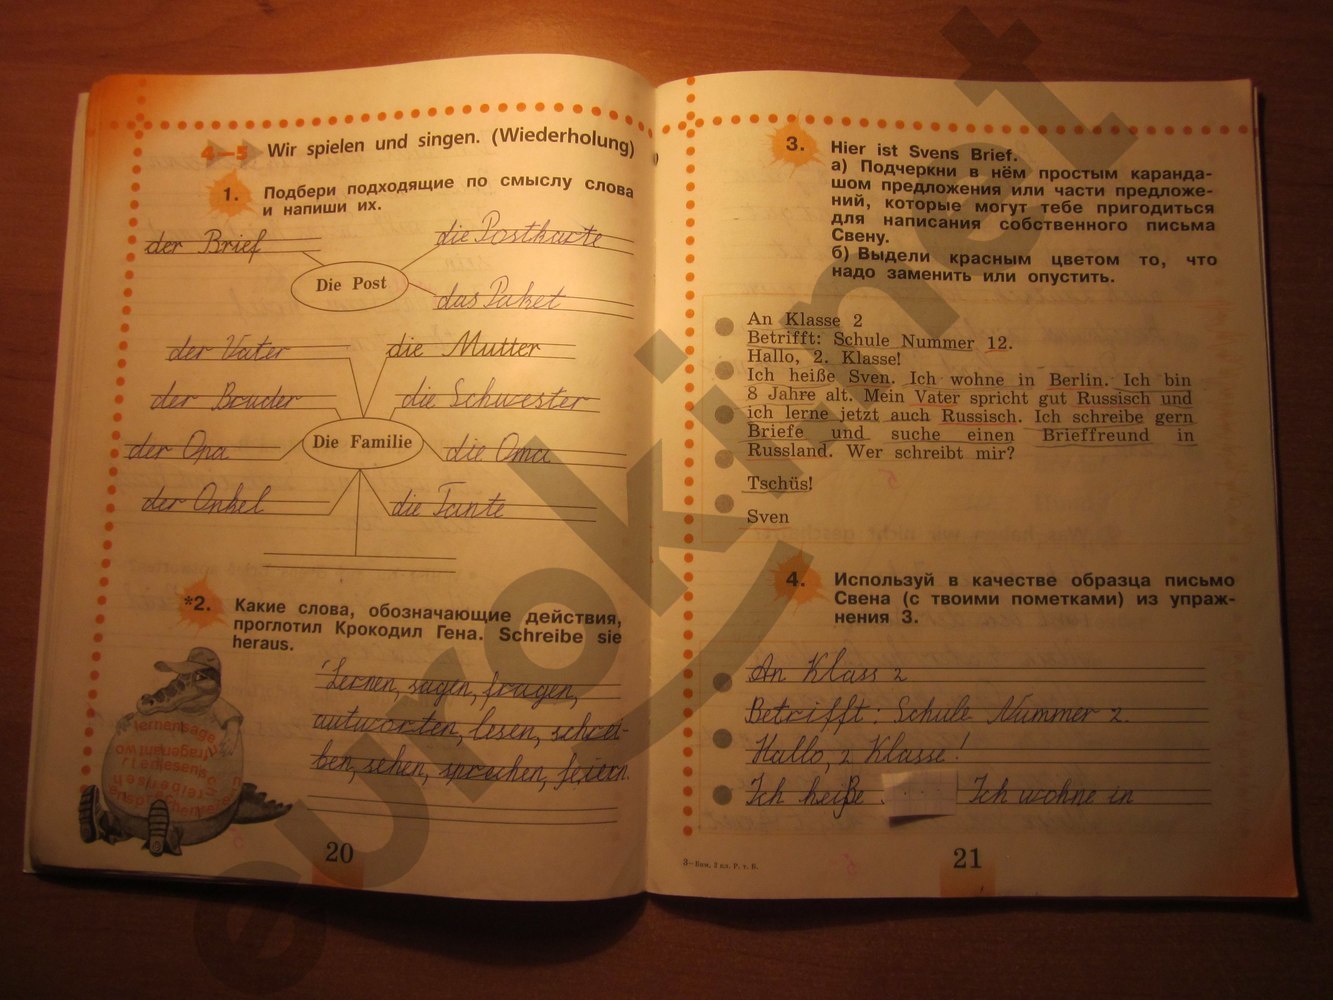 4–5 Wir spielen und singen. (Wiederholung)
1. Подбери подходящие по смыслу слова
и напиши их.
der Brief
die Postkarte
Die Post
das Paket
der Vater
die Mutter
der Bruder
die Schwester
Die Familie
der Opa
die Oma
der Onkel
die Tante
*2. Какие слова, обозначающие действия,
проглотил Крокодил Гена. Schreibe sie
heraus.
lernensage
Lernen, sagen, fragen,
antworten, lesen, schrei-
ben, sehen, sprechen, feiern.
20
3. Hier ist Svens Brief.
а) Подчеркни в нём простым каранда-
шом предложения или части предложе-
ний, которые могут тебе пригодиться
для написания собственного письма
Свену.
б) Выдели красным цветом то, что
надо заменить или опустить.
An Klasse 2
Betrifft: Schule Nummer 12.
Hallo, 2. Klasse!
Ich heiße Sven. Ich wohne in Berlin. Ich bin
8 Jahre alt. Mein Vater spricht gut Russisch und
ich lerne jetzt auch Russisch. Ich schreibe gern
Briefe und suche einen Brieffreund in
Russland. Wer schreibt mir?
Tschüs!
Sven
4. Используй в качестве образца письмо
Свена (с твоими пометками) из упраж-
нения 3.
An Klass 2
Betrifft: Schule Nummer 2.
Hallo, 2 Klasse!
Ich heiße Ich wohne in
3–Бим, 2 кл. Р. т. Б.
21
eurokinet